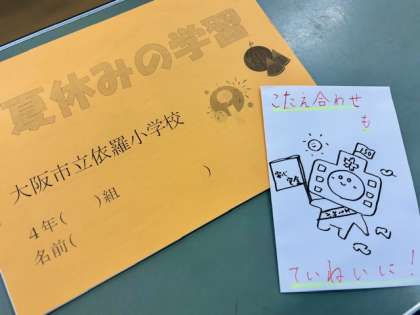 夏休みの学習
大阪市立依羅小学校
4年( )組
名前( )
こたえ合わせ
も
ていねいに!